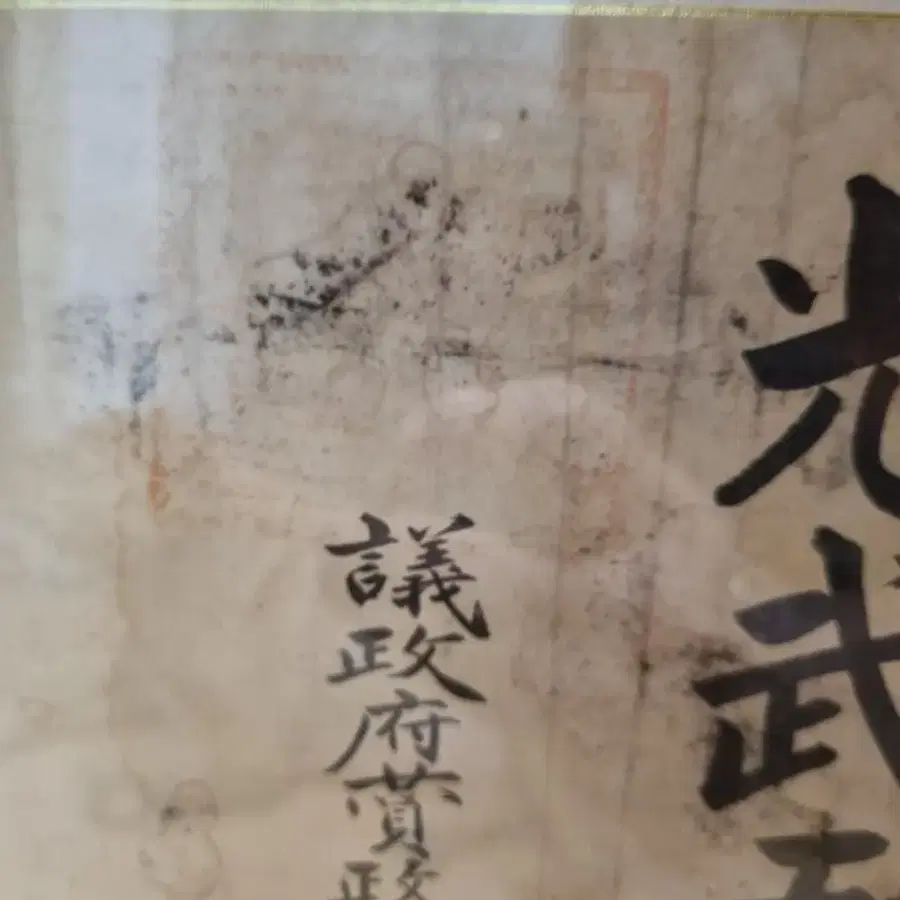 光武
議政府贊政